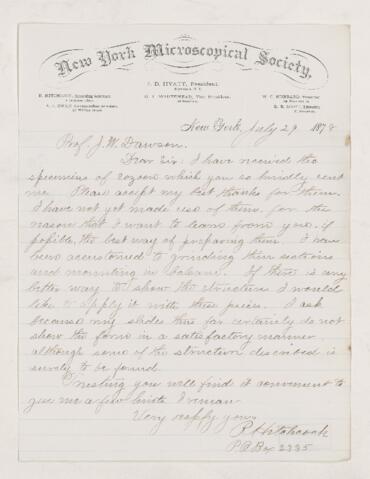 New York Microscopical Society,
J. D. HYATT, President,
R. HITCHCOCK,
New York, July 29 1878
Prof. J. W. Dawson.
Dear Sir: I have received the
specimens of eozoon which you so kindly sent
me. Please accept my best thanks for them.
I have not yet made use of them, for the
reason that I want to learn from you, if
possible, the best way of preparing them. I have
been accustomed to grinding thin sections
and mounting in balsam. If there is any
better way to show the structure I would
like to apply it with these pieces. I ask
because my slides thus far certainly do not
show the form in a satisfactory manner
although some of the structure described is
surely to be found.
Trusting you will find it convenient to
give me a few hints I remain
Very respfy yours
R Hitchcock
P.O. Box 2335